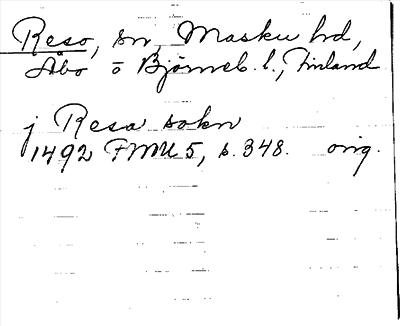 Reso, sn, Masku hd,
Åbo o Björneb. l., Finland
j Resa sokn
1492 FMU 5, s. 348. orig.